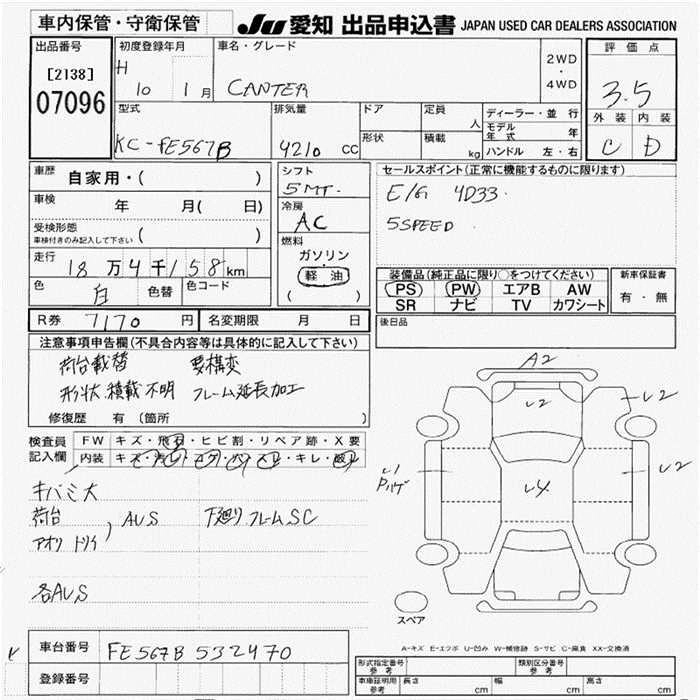 車内保管・守衛保管
JU 愛知 出品申込書 JAPAN USED CAR DEALERS ASSOCIATION
出品番号
[2138]
07096
初度登録年月
H 10 1月
車名・グレード
CANTER
2WD
・
4WD
評価点
3.5
外装 内装
C D
型式
KC-FE567B
排気量
4210 CC
ドア
形状
定員
人
積載
kg
ディーラー・並行
モデル年式 年
ハンドル 左・右
車歴 自家用・( )
車検 年 月( 日)
受検形態
車検付きのみ記入して下さい ( )
走行 18万4千158km
色 白 色替 色コード
シフト
5MT.
冷房
AC
燃料
ガソリン
軽油
( )
セールスポイント(正常に機能するものに限ります)
E/G 4D33.
5SPEED
装備品(純正品に限り○をつけてください)
PS PW エアB AW
SR ナビ TV カワシート
新車保証書
有・無
R券 7170 円 名変期限 月 日
後日品
注意事項申告欄(不具合内容等は具体的に記入して下さい)
荷台載替 要構変
形状 積載不明 フレーム延長加工
修復歴 有 〔箇所 〕
検査員記入欄
FW キズ・飛石・ヒビ割・リペア跡・X要
内装 キズ・汚レ・コゲ・穴・スレ・キレ・破レ
キバミ大
荷台
アオリ トリイ ) AUS 下廻り フレームSC
各AUS
A2
U2
U2
U1
U2
U4
スペア
A-キズ E-エクボ U-凹み W-補修跡 S-サビ C-腐食 XX-交換済
車台番号 FE567B 532470
登録番号
形式指定番号 参考
類別区分番号 参考
車庫証明用 参考 長さ cm 幅 cm 高さ cm